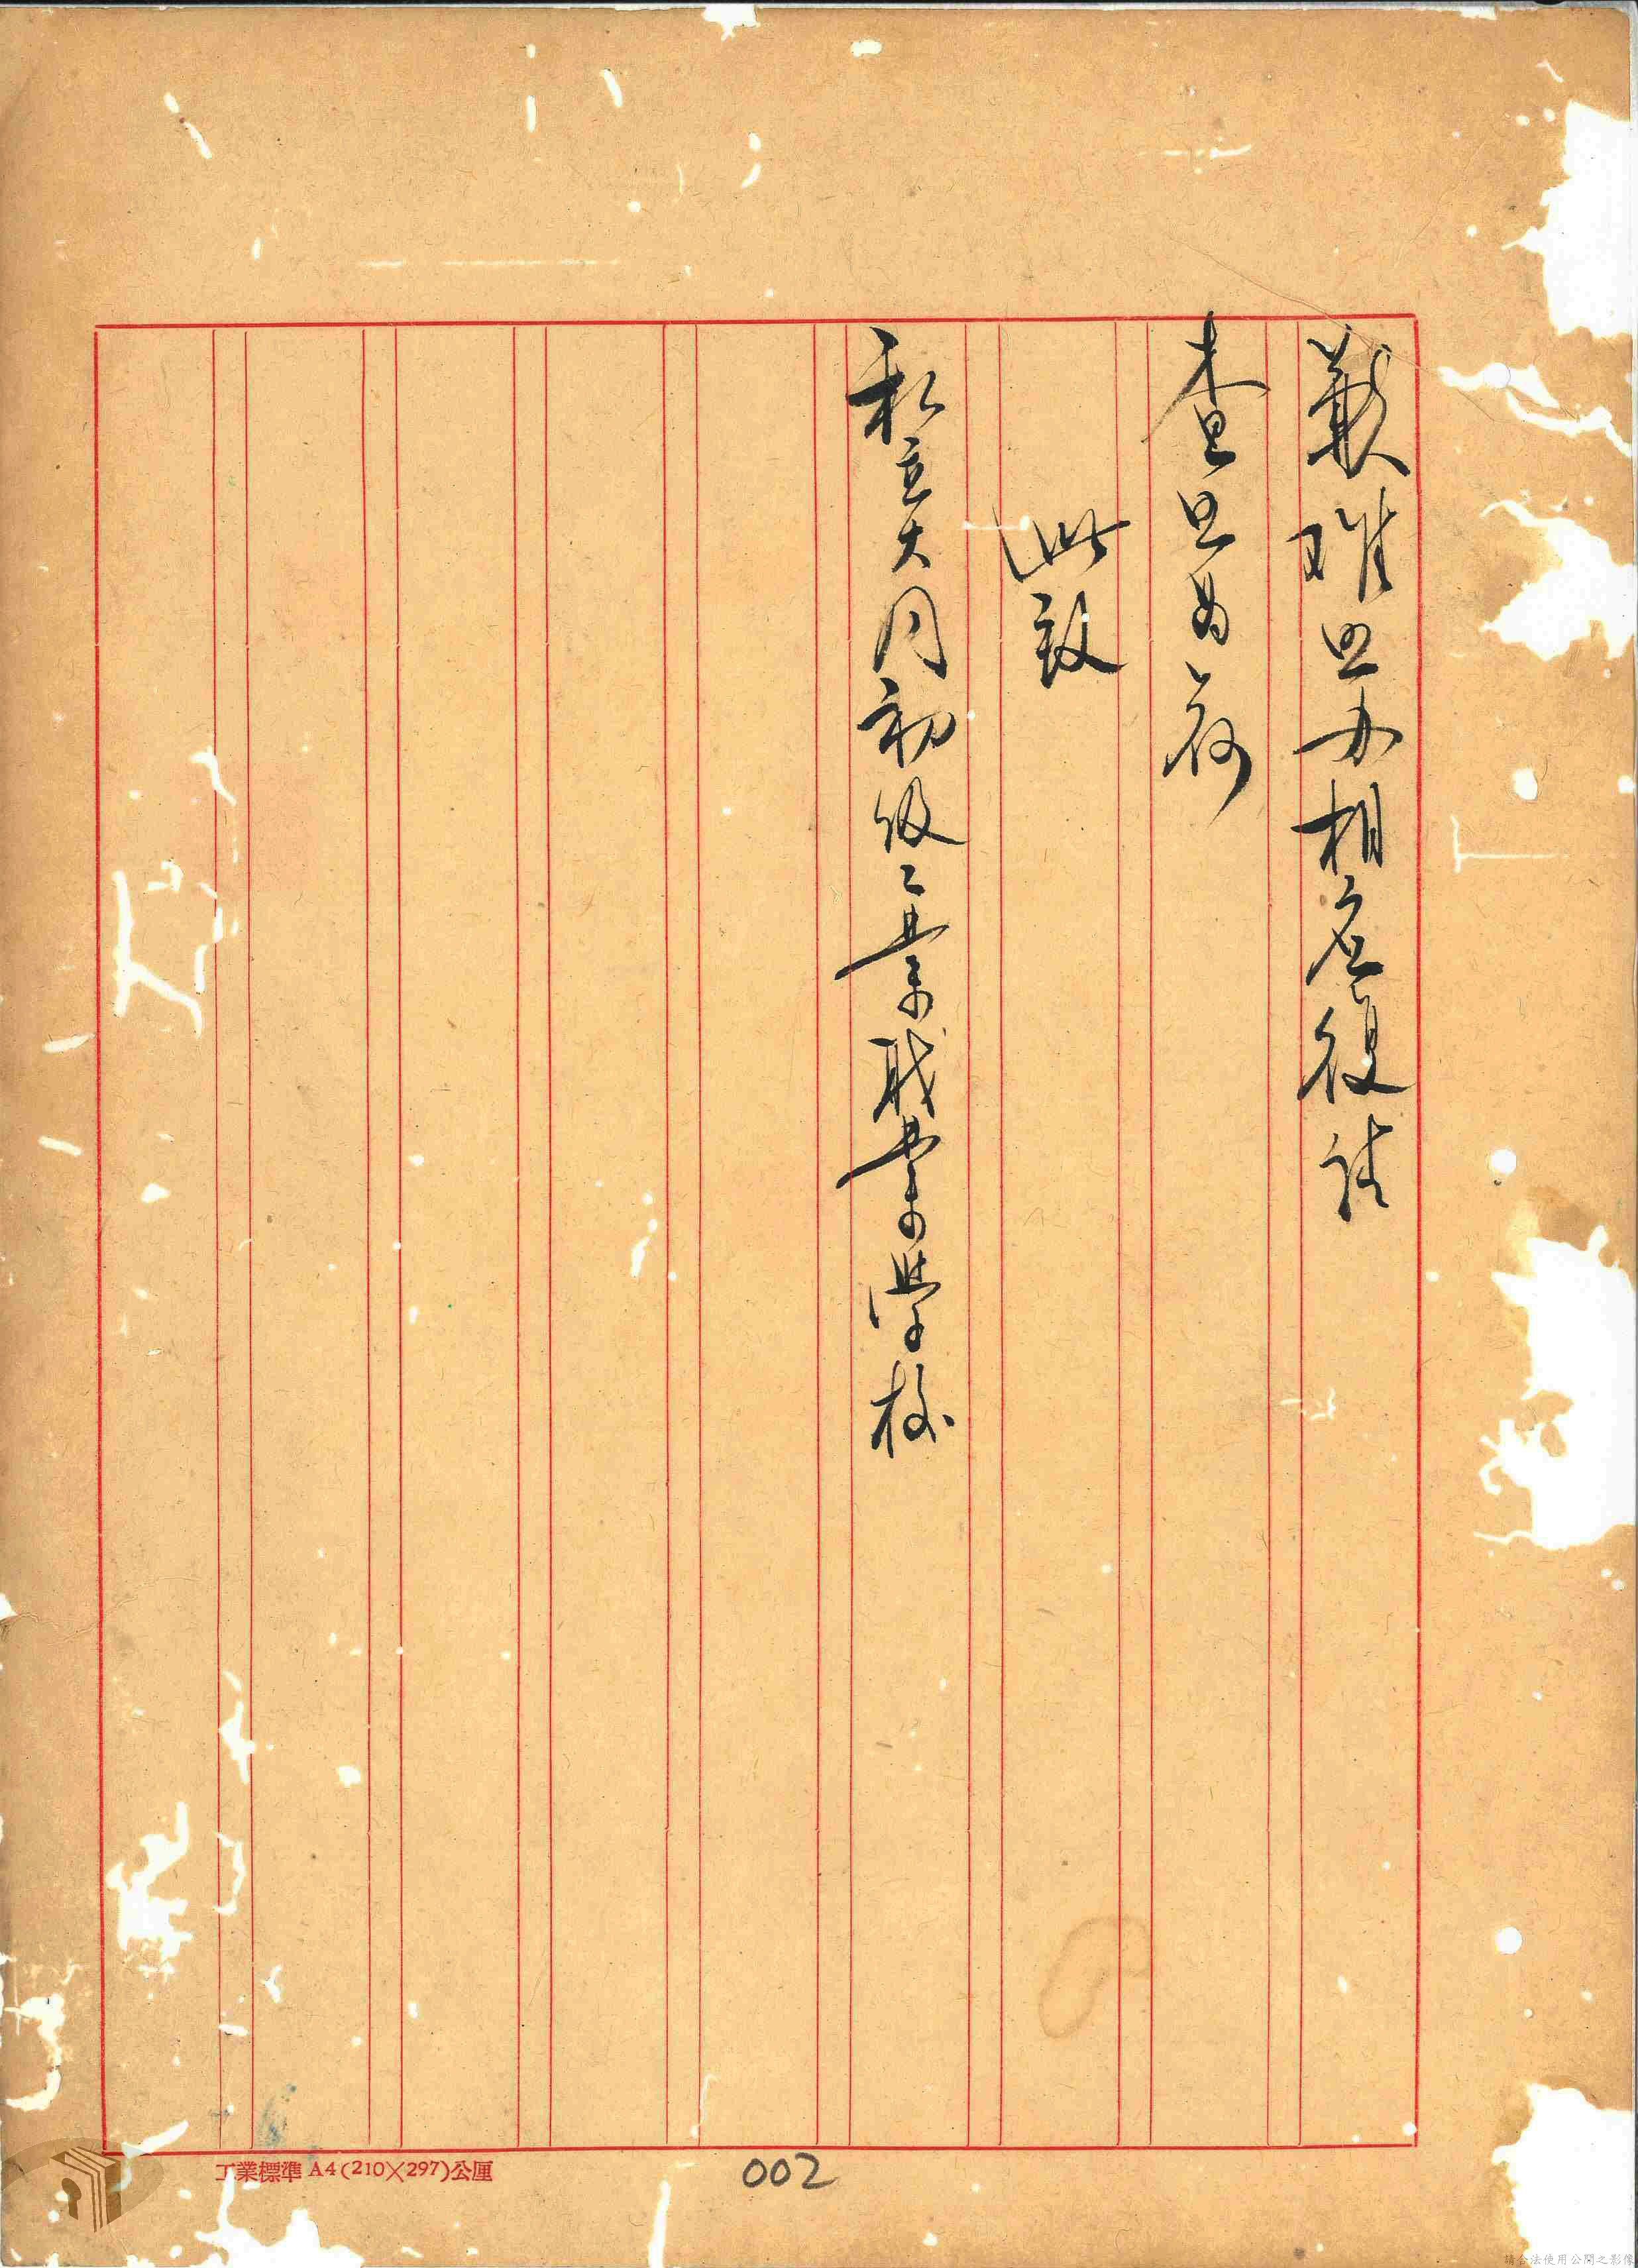 歉难照办相應復請
查照為荷
此致
私立大同初級工業職業學校
工業標準 A4(210×297)公厘
002
請合法使用公開之影像